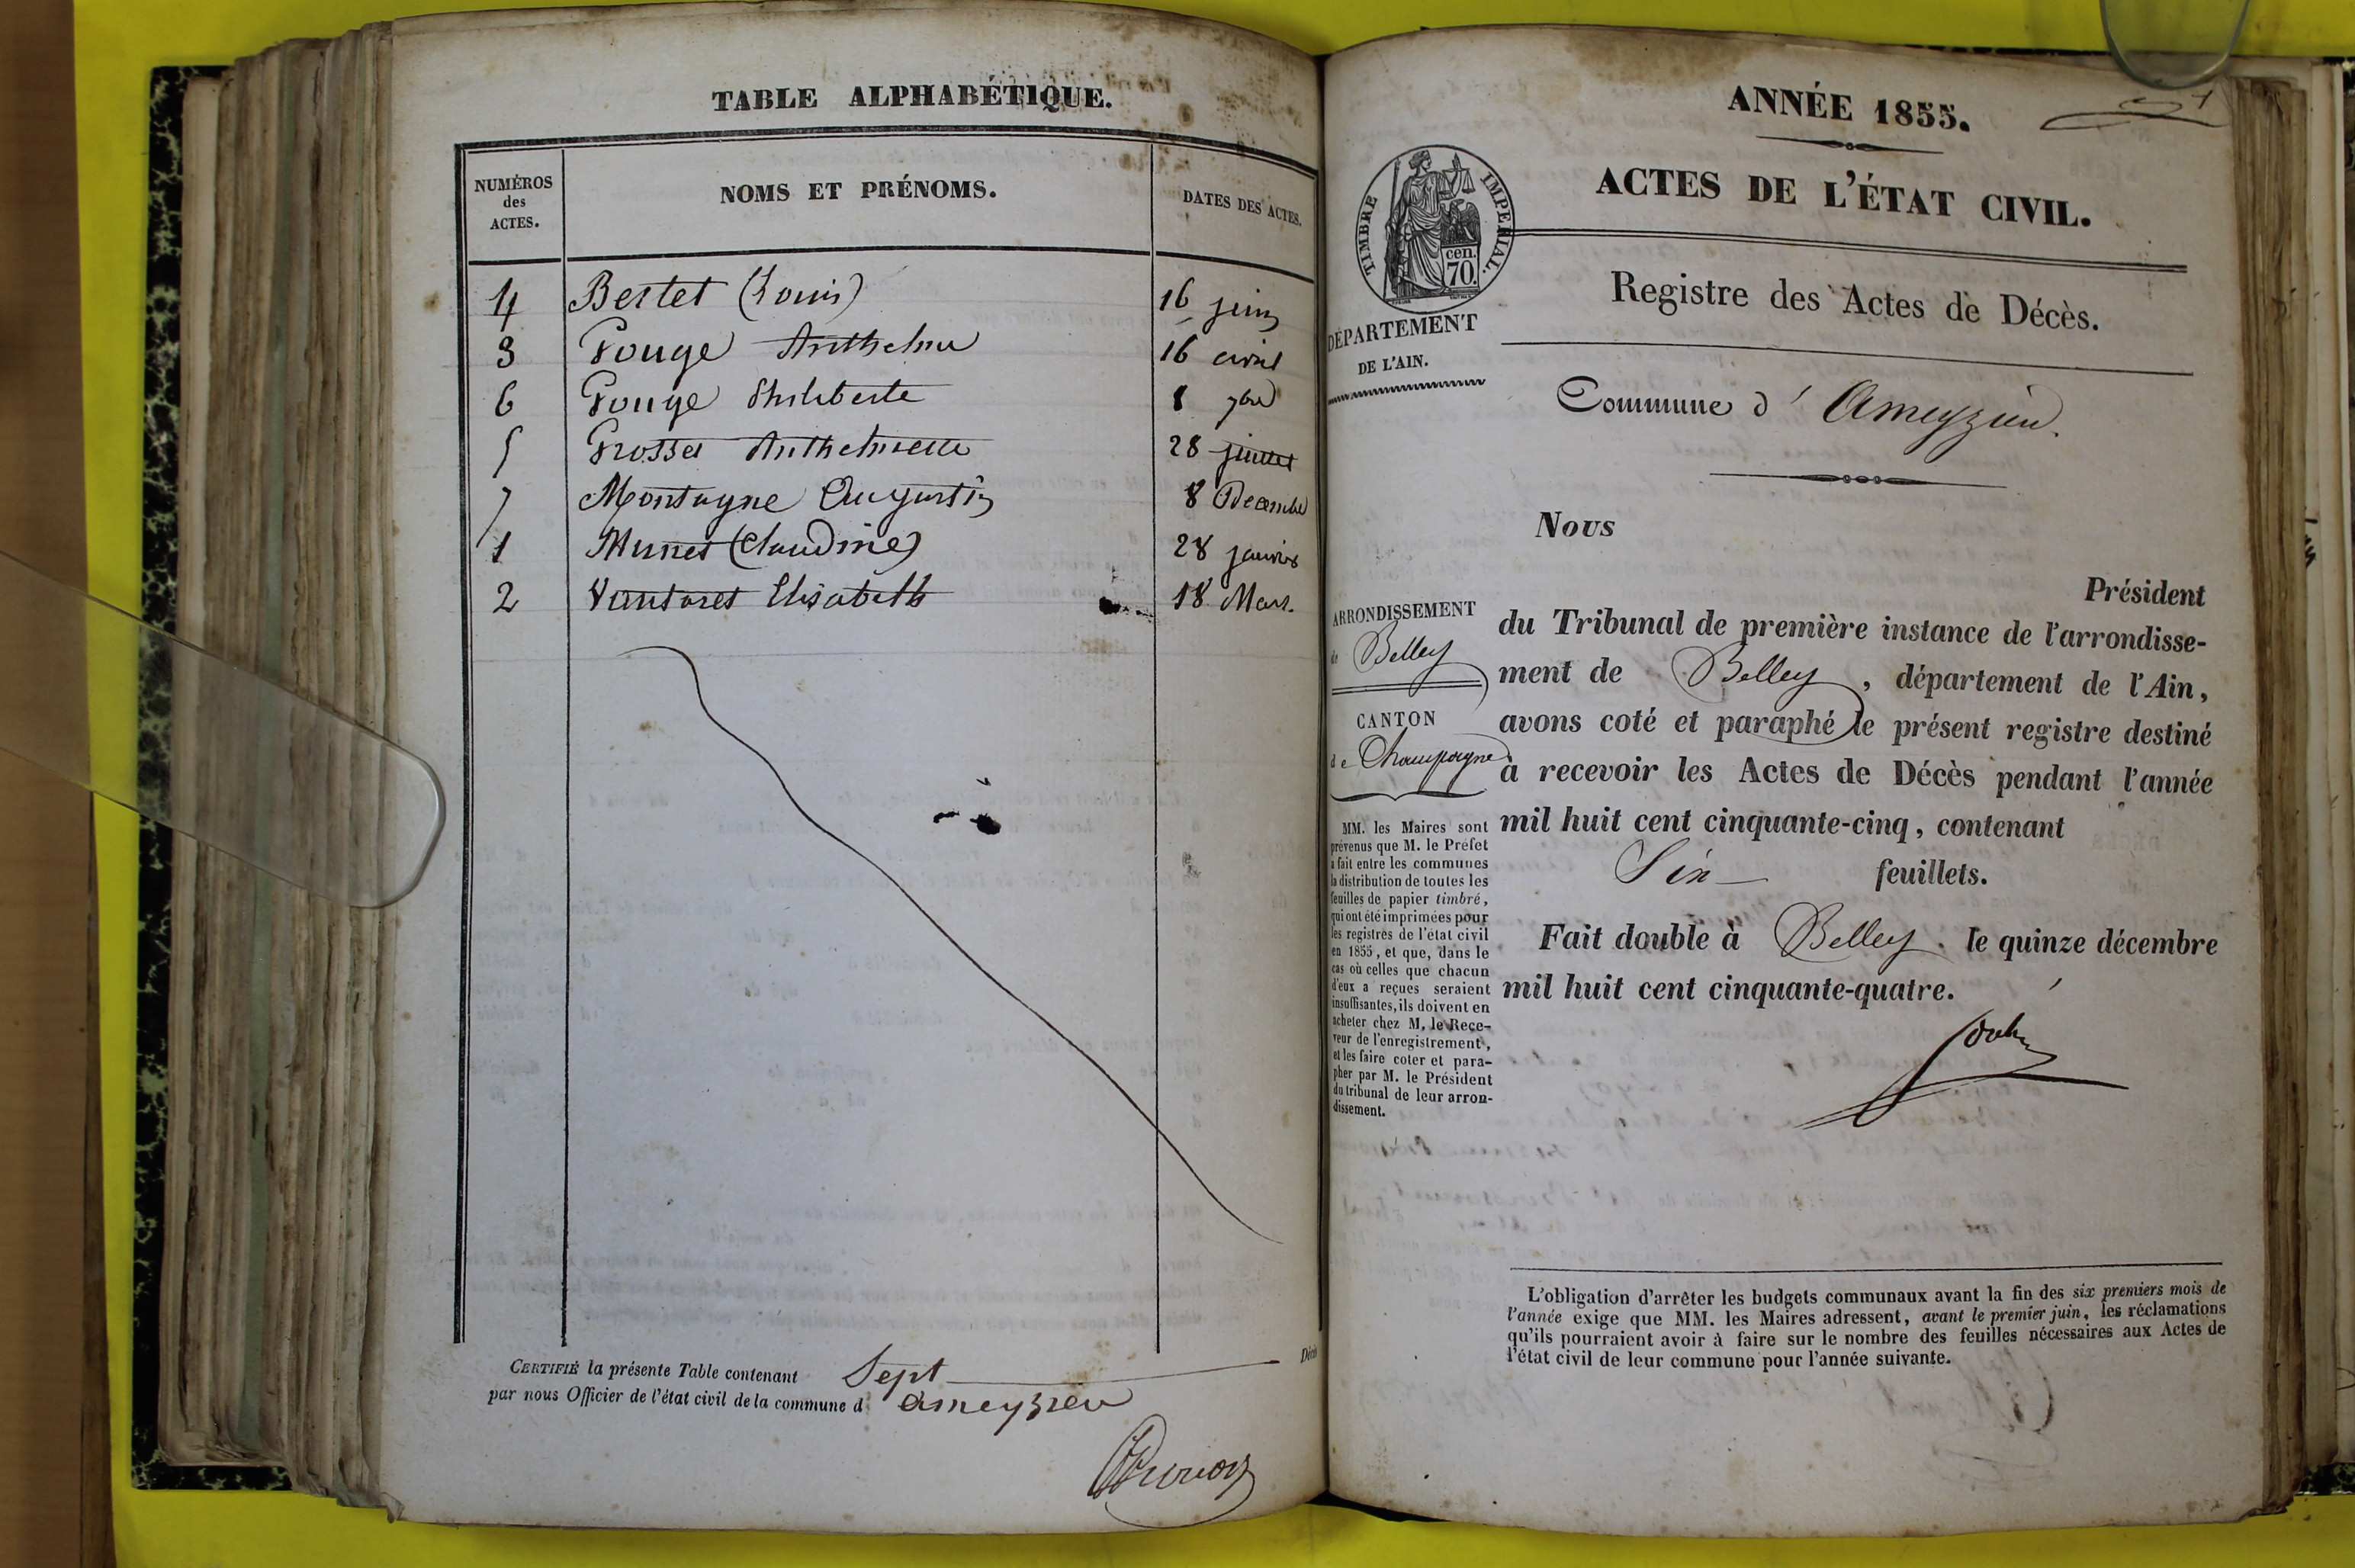 TABLE ALPHABÉTIQUE.
NUMÉROS
des
ACTES.
NOMS ET PRÉNOMS.
DATES DES ACTES.
4 Bertet (Louis) 16 juin
3 Gouge Anthelme 16 avril
6 Gouge Philiberte 8 7bre
5 Grosset Anthelmette 28 juillet
7 Montagne Augustin 8 Decembre
1 Munet (Claudine) 28 janvier
2 Elisabeth 18 Mars.
CERTIFIÉ la présente Table contenant Sept Décès
par nous Officier de l'état civil de la commune d ameyzieu
ANNÉE 1855.
1
ACTES DE L'ÉTAT CIVIL.
TIMBRE IMPERIAL.
cen.
70.
DÉPARTEMENT
DE L'AIN.
Registre des Actes de Décès.
Commune d' Ameyzieu.
Nous
Président
du Tribunal de première instance de l'arrondisse-
ment de Belley, département de l'Ain,
avons coté et paraphé le présent registre destiné
à recevoir les Actes de Décès pendant l'année
mil huit cent cinquante-cinq, contenant
Six feuillets.
Fait double à Belley. le quinze décembre
mil huit cent cinquante-quatre.
ARRONDISSEMENT
de Belley
CANTON
de Champagne
MM. les Maires sont
prévenus que M. le Préfet
a fait entre les communes
la distribution de toutes les
feuilles de papier timbré,
qui ont été imprimées pour
les registres de l'état civil
en 1855, et que, dans le
cas où celles que chacun
d'eux a reçues seraient
insuffisantes, ils doivent en
acheter chez M. le Rece-
veur de l'enregistrement,
et les faire coter et para-
pher par M. le Président
du tribunal de leur arron-
dissement.
L'obligation d'arrêter les budgets communaux avant la fin des six premiers mois de
l'année exige que MM. les Maires adressent, avant le premier juin, les réclamations
qu'ils pourraient avoir à faire sur le nombre des feuilles nécessaires aux Actes de
l'état civil de leur commune pour l'année suivante.